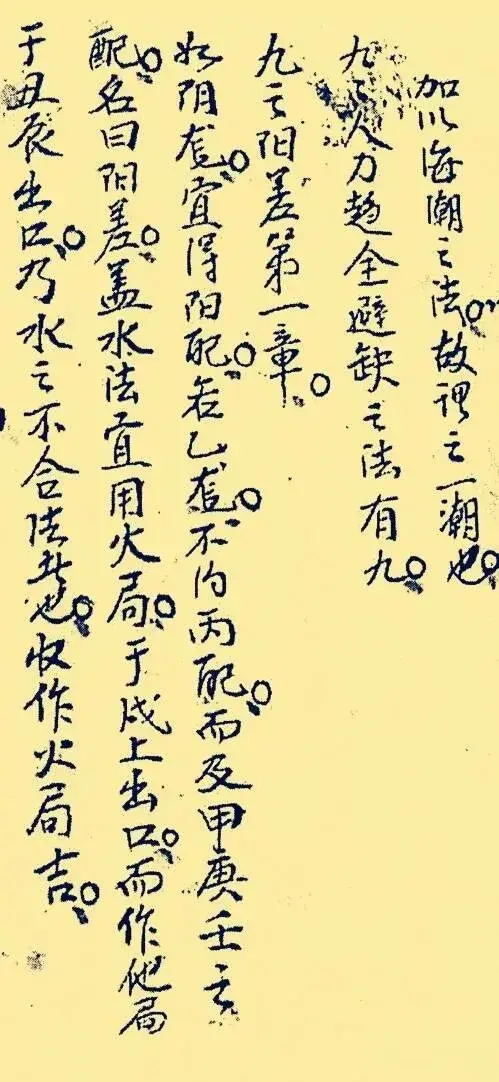 加以海潮之法。故谓之一潮也。
九之人力趋全避缺之法有九。
九之阳差第一章。
如阴龙。宜得阳配。若乙龙。不内丙配。而及甲庚壬之
配。名曰阳差。盖水法宜用火局。于戌上出口。而作他局
于丑辰出口。乃水之不合法者也。收作火局吉。